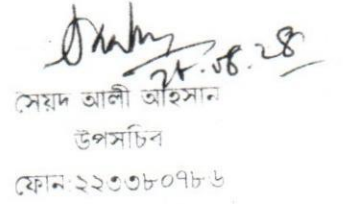 ২৮.০৪.২৪
সৈয়দ আলী আহসান
উপসচিব
ফোন:২২৩৩৮০৭৮৬